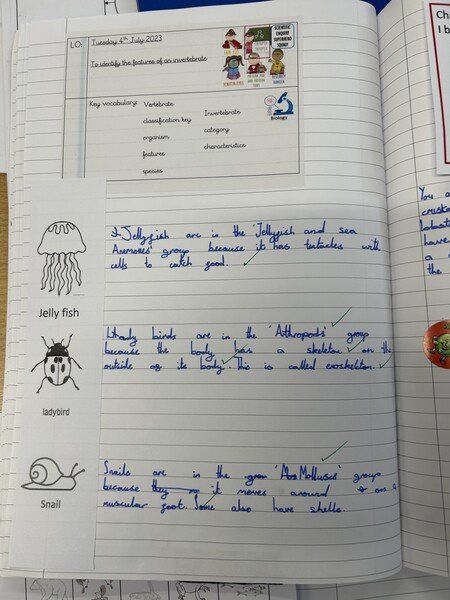 LO:
Tuesday 4th July 2023
To identify the features of an invertebrate
SCIENTIFIC
ENQUIRY
SUPERHERO
SQUAD
Key vocabulary:
Vertebrate
classification key
organism
features
species
Invertebrate
category
characteristics
Biology
Jellyfish are in the 'Jellyfish and sea
Anemones' group because it has tentacles with
cells to catch food.
Jelly fish
Lady birds are in the 'Arthropods' group
because the body has a skeleton on the
outside of its body. This is called exoskeleton.
ladybird
Snails are in the 'Molluscs' group
because it moves around on a
muscular foot. Some also have shells.
Snail
Ch
I b
You a
have
a
the